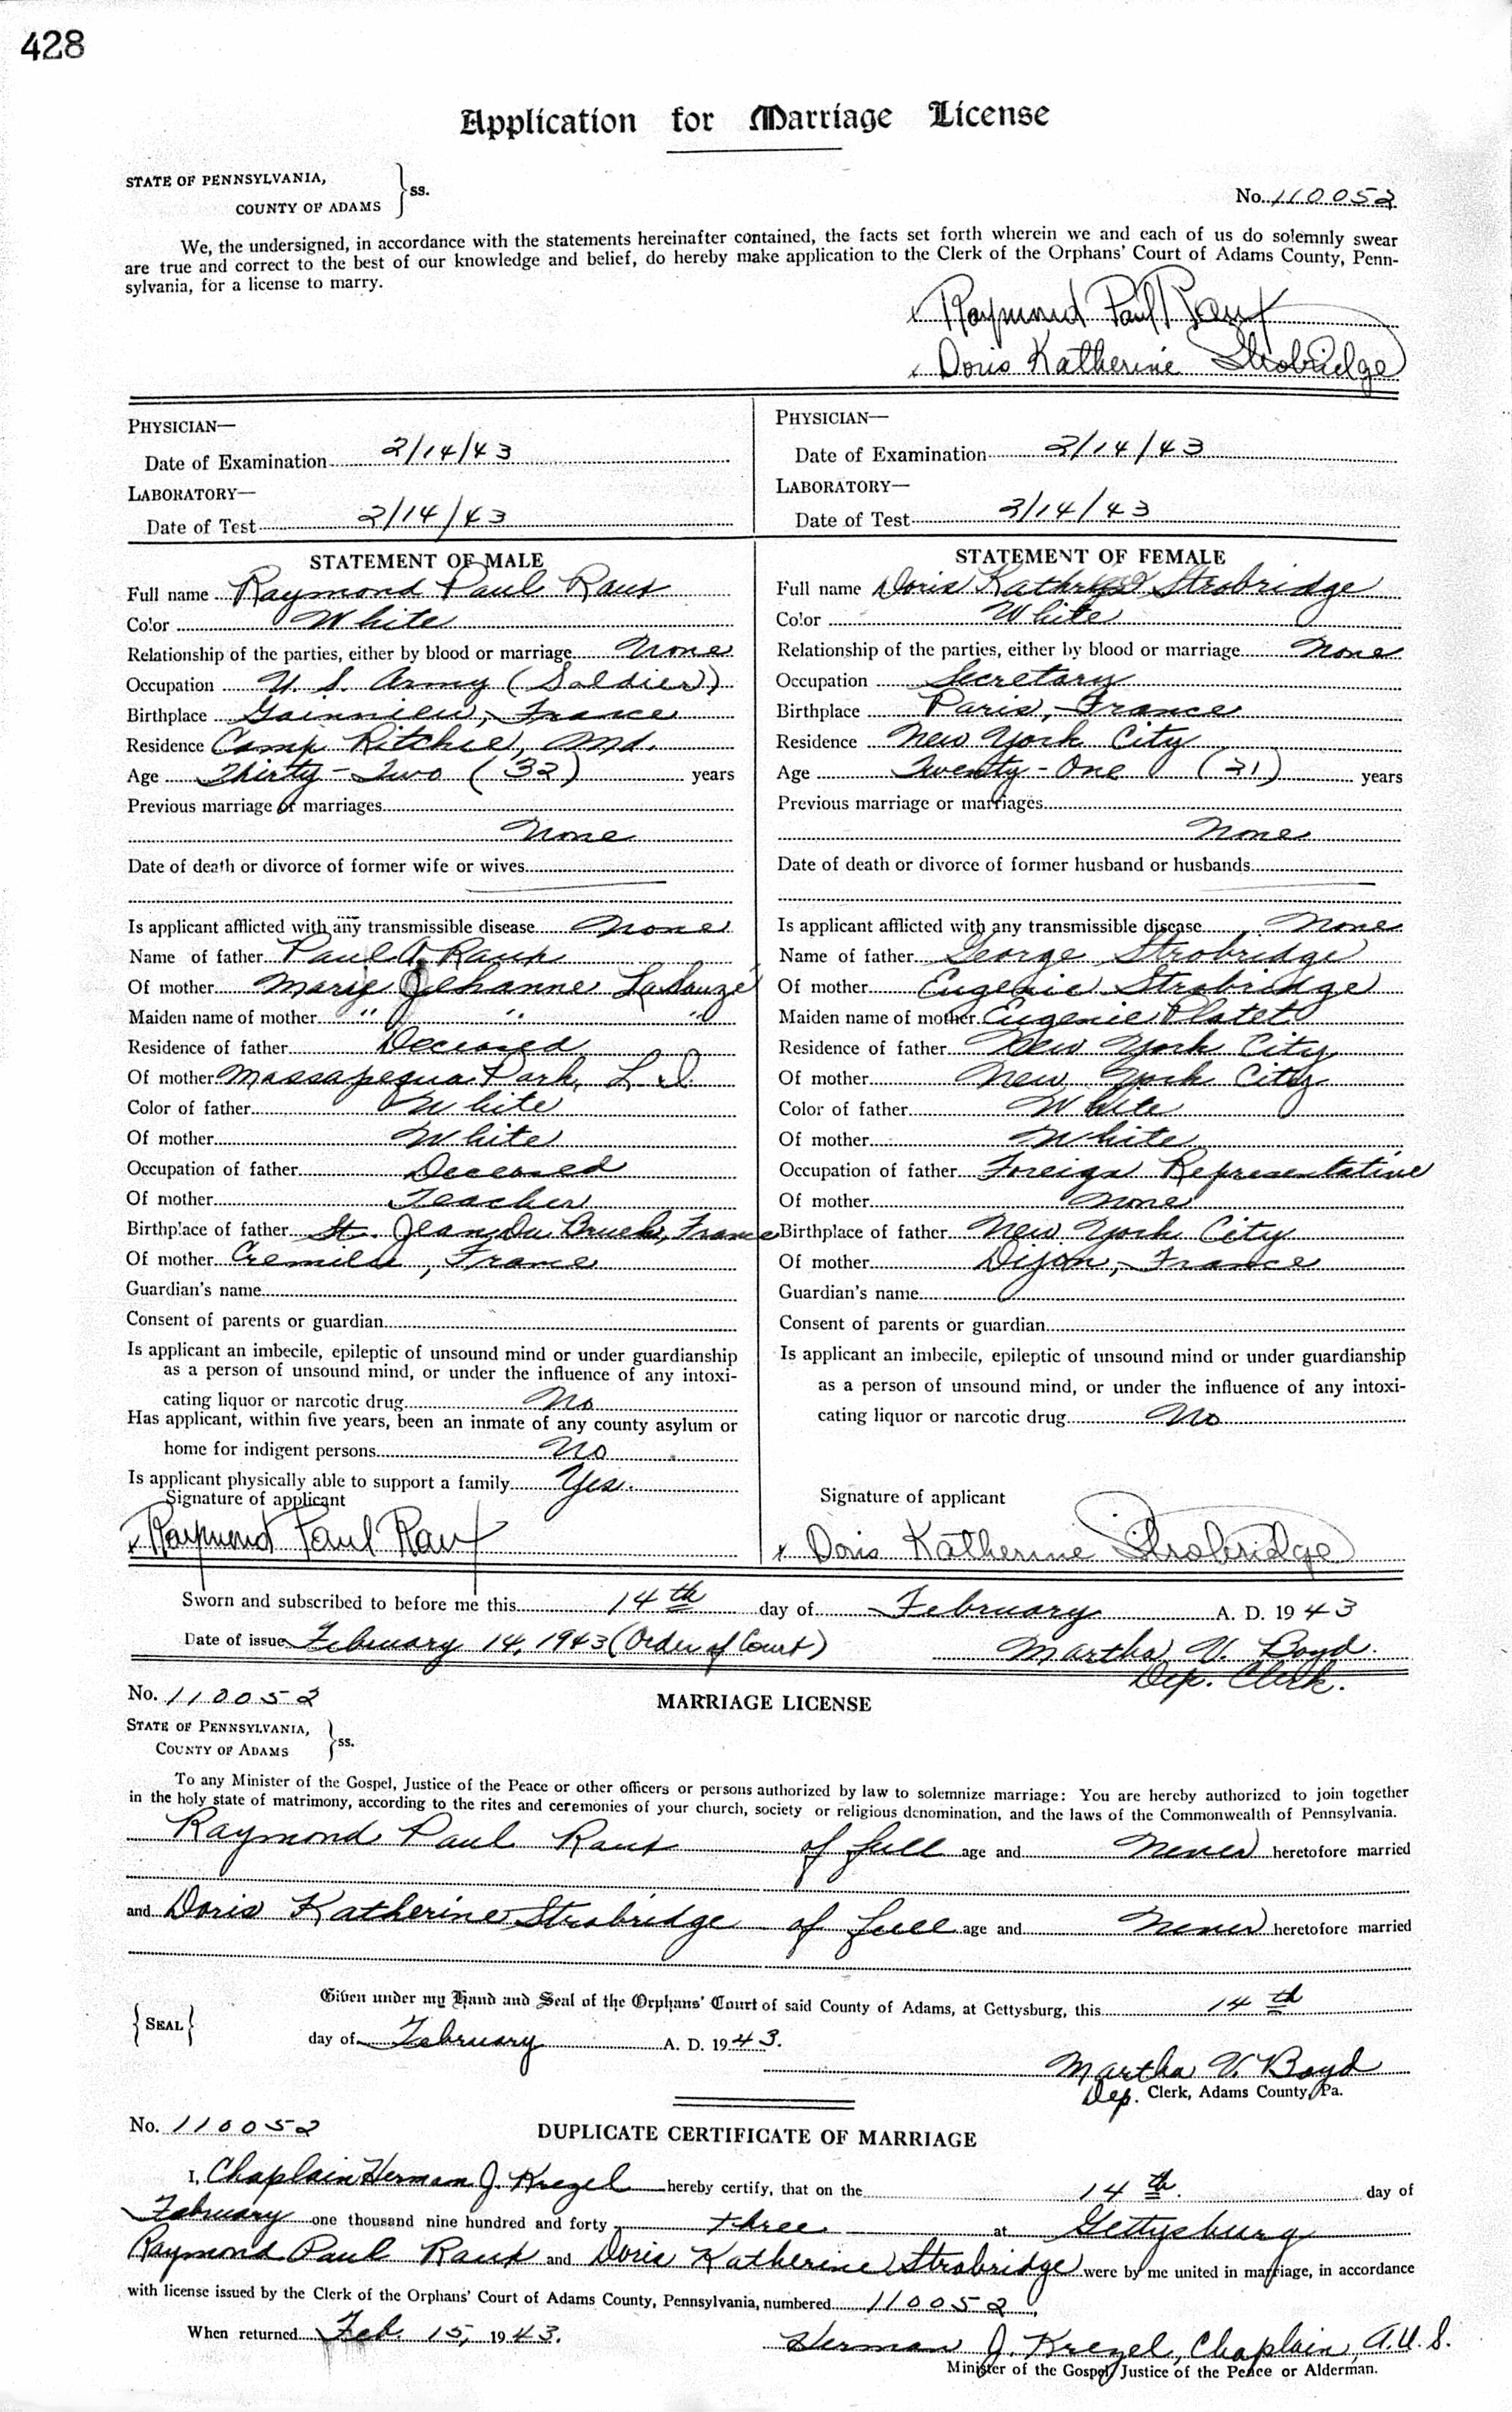 428
Application for Marriage License
STATE OF PENNSYLVANIA,
COUNTY OF ADAMS } ss.
No. 110052
We, the undersigned, in accordance with the statements hereinafter contained, the facts set forth wherein we and each of us do solemnly swear
are true and correct to the best of our knowledge and belief, do hereby make application to the Clerk of the Orphans' Court of Adams County, Penn-
sylvania, for a license to marry.
x Raymond Paul Raux
x Doris Katherine Strobridge
PHYSICIAN—
Date of Examination 2/14/43
LABORATORY—
Date of Test 2/14/43
PHYSICIAN—
Date of Examination 2/14/43
LABORATORY—
Date of Test 2/14/43
STATEMENT OF MALE
Full name Raymond Paul Raux
Color White
Relationship of the parties, either by blood or marriage None
Occupation U. S. Army (Soldier)
Birthplace France
Residence Camp Ritchie, Md.
Age Thirty-Two (32) years
Previous marriage or marriages
None
Date of death or divorce of former wife or wives
Is applicant afflicted with any transmissible disease None
Name of father Paul A. Raux
Of mother Marie Jehanne
Maiden name of mother " " "
Residence of father Deceased
Of mother Massapequa Park, L. I.
Color of father White
Of mother White
Occupation of father Deceased
Of mother Teacher
Birthplace of father St. Jean Du Bruel, France
Of mother France
Guardian's name
Consent of parents or guardian
Is applicant an imbecile, epileptic of unsound mind or under guardianship
as a person of unsound mind, or under the influence of any intoxi-
cating liquor or narcotic drug No
Has applicant, within five years, been an inmate of any county asylum or
home for indigent persons No
Is applicant physically able to support a family Yes.
Signature of applicant
x Raymond Paul Raux
STATEMENT OF FEMALE
Full name Doris Strobridge
Color White
Relationship of the parties, either by blood or marriage None
Occupation Secretary
Birthplace Paris, France
Residence New York City
Age Twenty-One (21) years
Previous marriage or marriages
None
Date of death or divorce of former husband or husbands
Is applicant afflicted with any transmissible disease None
Name of father George Strobridge
Of mother Eugenie Strobridge
Maiden name of mother Eugenie Platet
Residence of father New York City
Of mother New York City
Color of father White
Of mother White
Occupation of father Foreign Representative
Of mother None
Birthplace of father New York City
Of mother Dijon, France
Guardian's name
Consent of parents or guardian
Is applicant an imbecile, epileptic of unsound mind or under guardianship
as a person of unsound mind, or under the influence of any intoxi-
cating liquor or narcotic drug No
Signature of applicant
x Doris Katherine Strobridge
Sworn and subscribed to before me this 14th day of February A. D. 1943
Date of issue February 14, 1943 (Order of Court) Martha V. Boyd
Dep. Clerk.
No. 110052
MARRIAGE LICENSE
STATE OF PENNSYLVANIA,
COUNTY OF ADAMS } ss.
To any Minister of the Gospel, Justice of the Peace or other officers or persons authorized by law to solemnize marriage: You are hereby authorized to join together
in the holy state of matrimony, according to the rites and ceremonies of your church, society or religious denomination, and the laws of the Commonwealth of Pennsylvania.
Raymond Paul Raux of full age and never heretofore married
and Doris Katherine Strobridge of full age and never heretofore married
Given under my Hand and Seal of the Orphans' Court of said County of Adams, at Gettysburg, this 14th
{SEAL}
day of February A. D. 1943.
Martha V. Boyd
Dep. Clerk, Adams County, Pa.
No. 110052
DUPLICATE CERTIFICATE OF MARRIAGE
I, Chaplain Herman J. Kregel hereby certify, that on the 14th. day of
February one thousand nine hundred and forty three at Gettysburg
Raymond Paul Raux and Doris Katherine Strobridge were by me united in marriage, in accordance
with license issued by the Clerk of the Orphans' Court of Adams County, Pennsylvania, numbered 110052.
When returned Feb. 15, 1943.
Herman J. Kregel, Chaplain, A.U.S.
Minister of the Gospel, Justice of the Peace or Alderman.